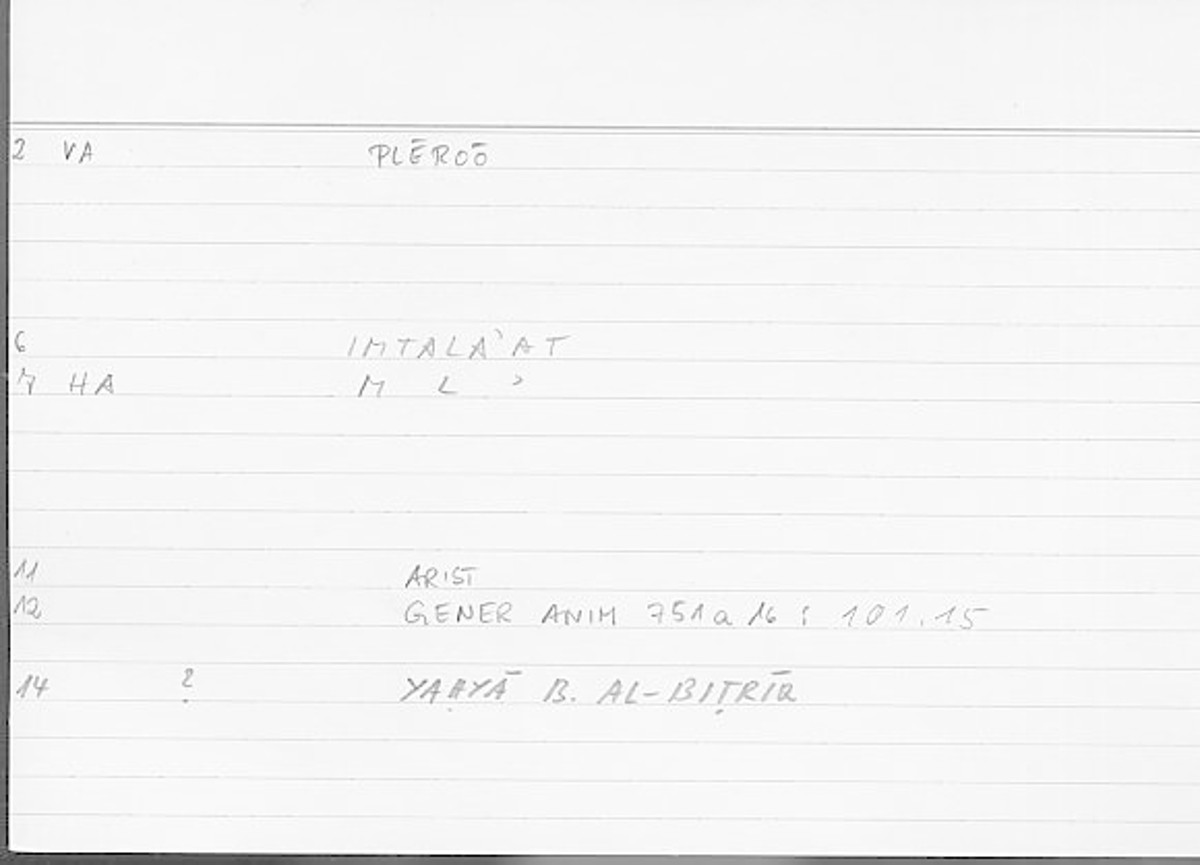 2 VA PLĒROŌ
6 IMTALA'AT
7 HA M L ʾ
11 ARIST
12 GENER ANIM 751a 16 : 101.15
14 ? YAḤYĀ B. AL-BIṬRĪQ